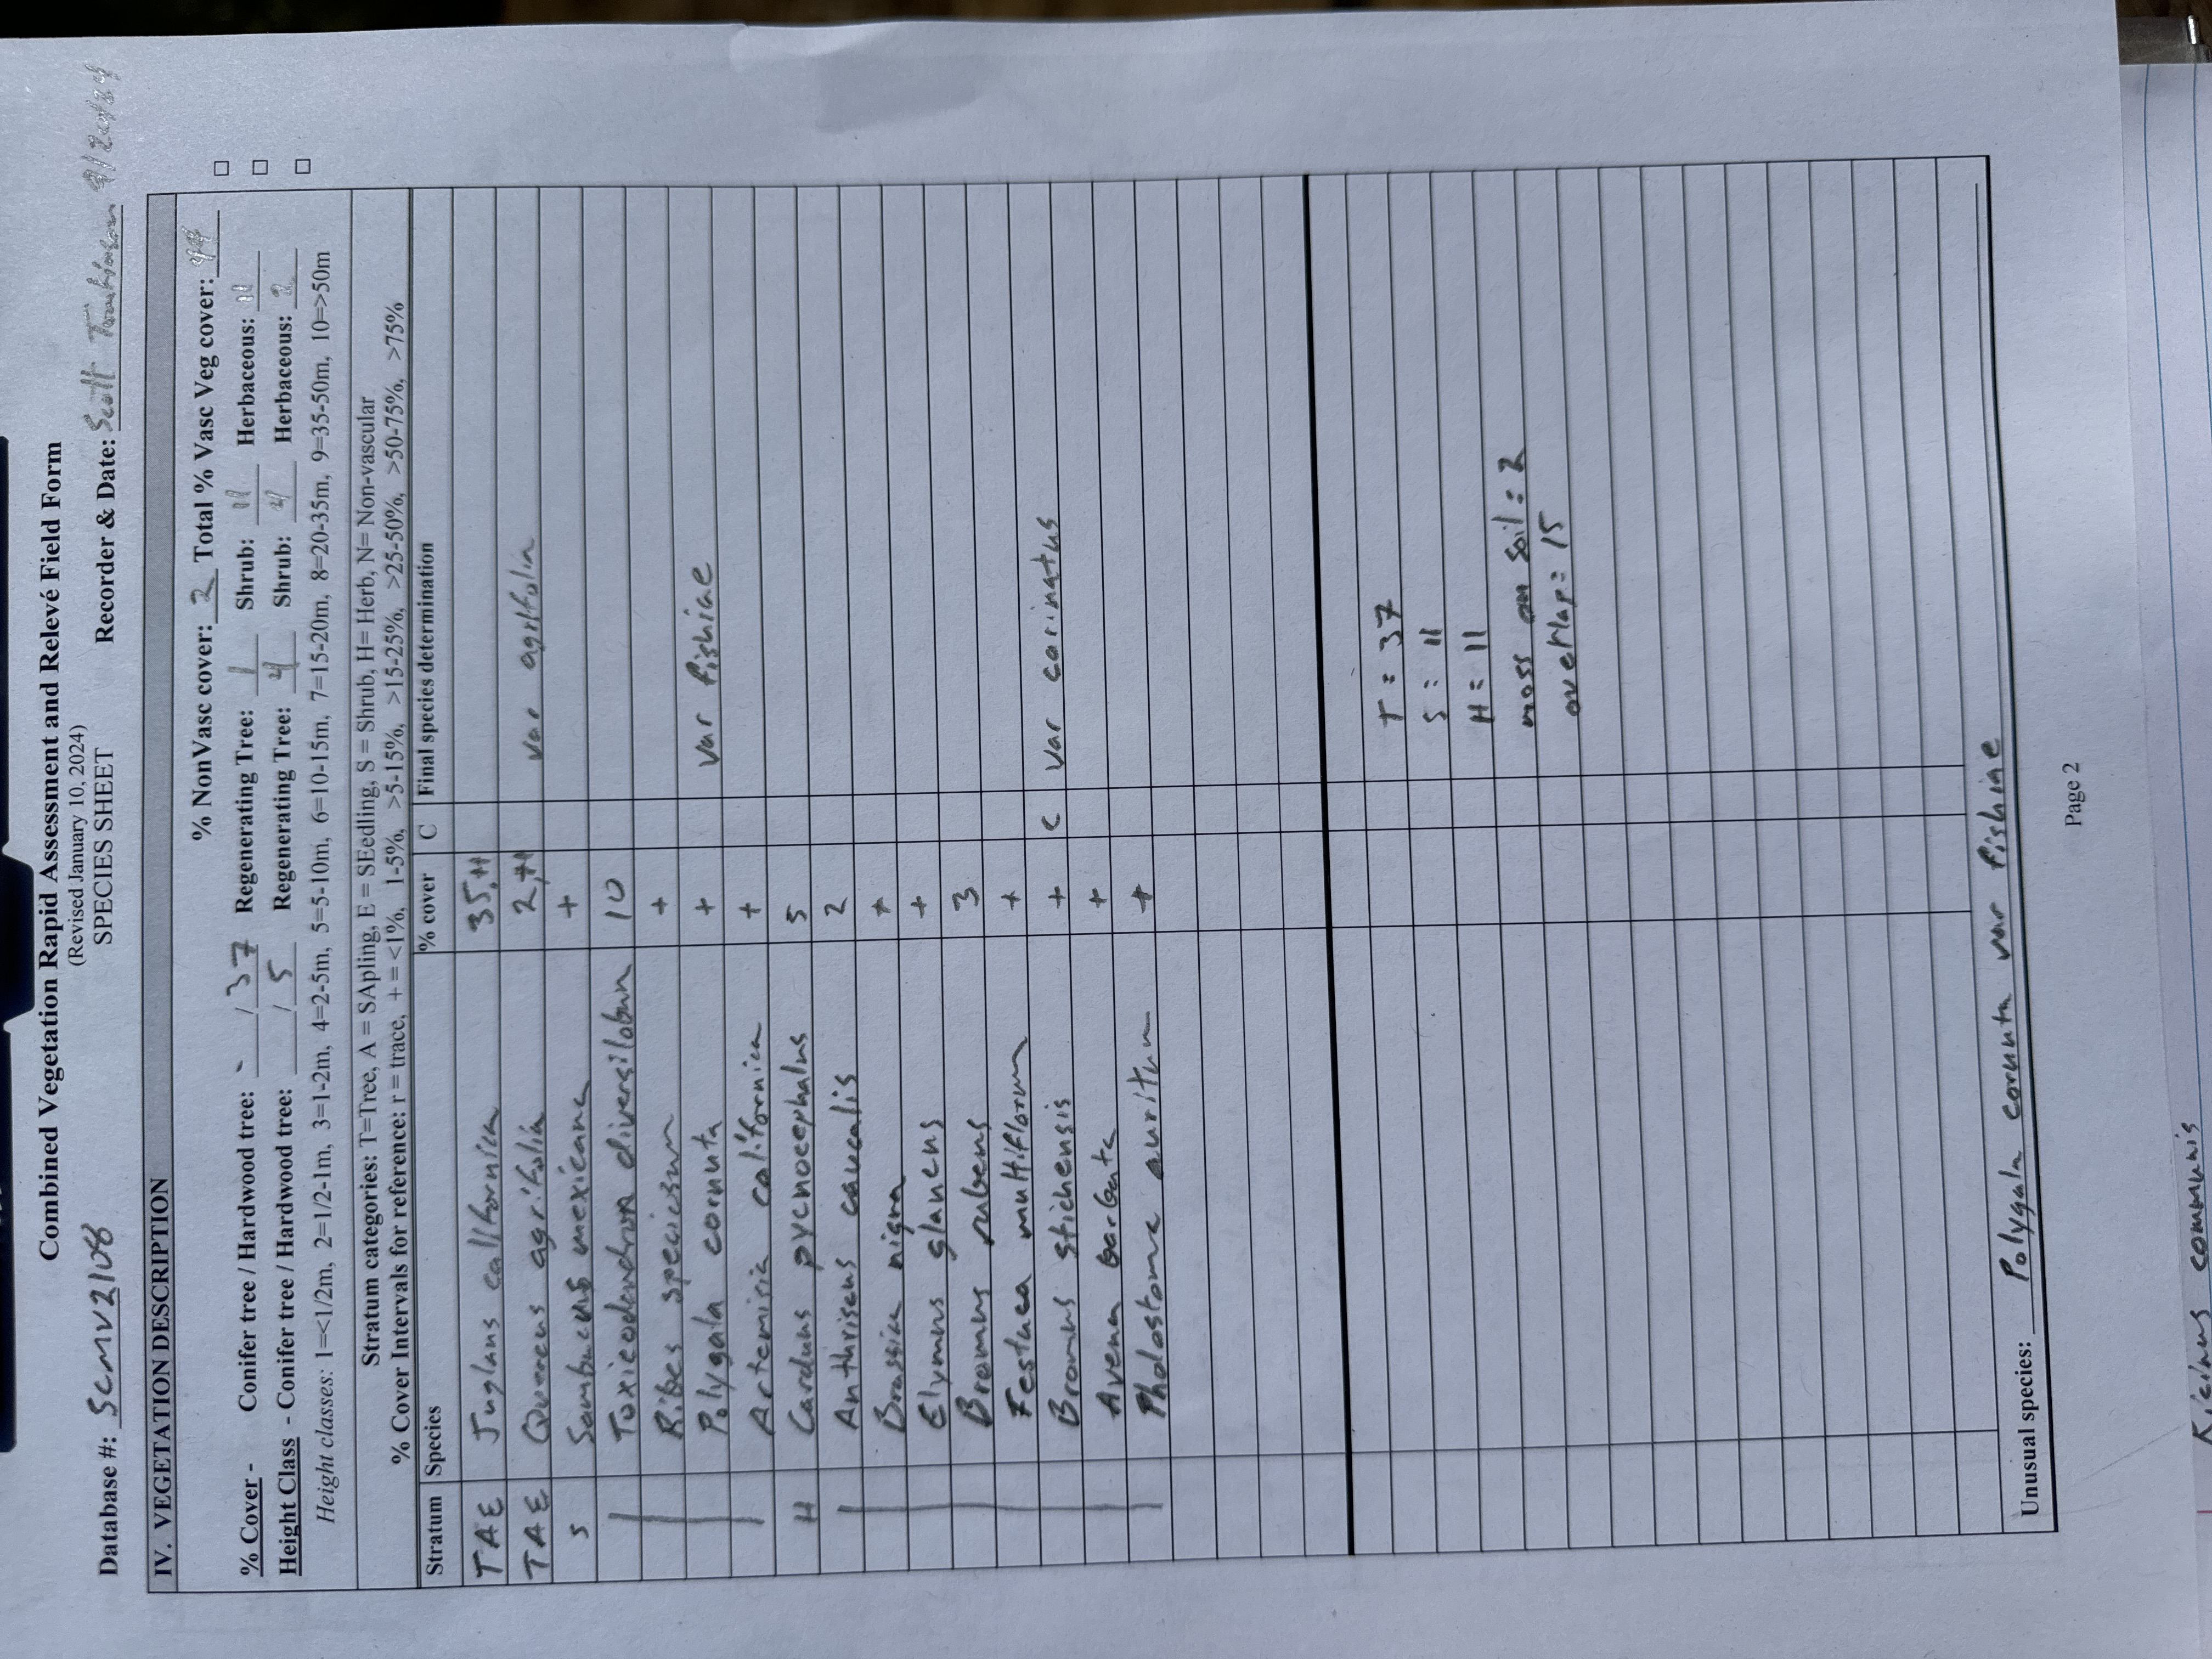 Combined Vegetation Rapid Assessment and Relevé Field Form
(Revised January 10, 2024)
SPECIES SHEET
Database #: SCMV2108 Recorder & Date: Scott
IV. VEGETATION DESCRIPTION
% NonVasc cover: 2 Total % Vasc Veg cover: 44 □
% Cover - Conifer tree / Hardwood tree: - / 37 Regenerating Tree: 1 Shrub: 11 Herbaceous: 11 □
Height Class - Conifer tree / Hardwood tree: / 5 Regenerating Tree: 4 Shrub: 4 Herbaceous: 2 □
Height classes: 1=<1/2m, 2=1/2-1m, 3=1-2m, 4=2-5m, 5=5-10m, 6=10-15m, 7=15-20m, 8=20-35m, 9=35-50m, 10=>50m
Stratum categories: T=Tree, A = SApling, E = SEedling, S = Shrub, H= Herb, N= Non-vascular
% Cover Intervals for reference: r = trace, + = <1%, 1-5%, >5-15%, >15-25%, >25-50%, >50-75%, >75%
Stratum Species % cover C Final species determination
TAE Juglans californica 35,++
TAE Quercus agrifolia 2,++ var agrifolia
S Sambucus mexicana +
Toxicodendron diversilobum 10
Ribes speciosum +
Polygala cornuta + var fishiae
Artemisia californica +
H Carduus pycnocephalus 5
Anthriscus caucalis 2
Brassica nigra +
Elymus glaucus +
Bromus rubens 3
Festuca multiflorum +
Bromus stichensis + C var carinatus
Avena barbata +
Pholostoma auritum +
T = 37
S = 11
H = 11
moss on soil = 2
overlap = 15
Unusual species: Polygala cornuta var fishiae
Page 2
Ricinus communis